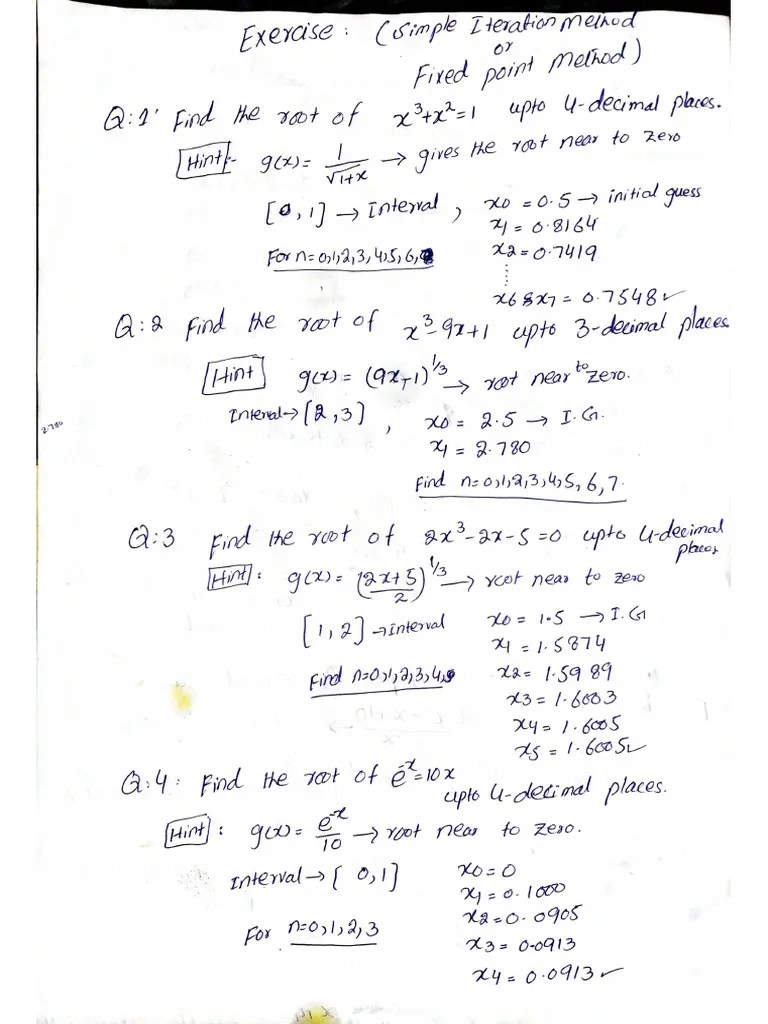 Exercise: (Simple Iteration Method
or
Fixed point Method)
Q:1' Find the root of x³+x²=1 upto 4-decimal places.
Hint:- g(x)= 1/√1+x → gives the root near to zero
[0,1] → Interval, x0 = 0.5 → initial guess
x1 = 0.8164
For n=0,1,2,3,4,5,6, x2 = 0.7419
x6 & x7 = 0.7548 ✓
Q:2 Find the root of x³-9x+1 upto 3-decimal places
Hint g(x)= (9x-1)^1/3 → root near to zero.
Interval → [2,3], x0 = 2.5 → I.G.
2.780
x1 = 2.780
Find n=0,1,2,3,4,5,6,7.
Q:3 Find the root of 2x³-2x-5=0 upto 4-decimal
places
Hint: g(x)= (2x+5/2)^1/3 → root near to zero
[1,2] → interval x0 = 1.5 → I.G
x1 = 1.5874
Find n=0,1,2,3,4, x2 = 1.5989
x3 = 1.6003
x4 = 1.6005
x5 = 1.6005 ✓
Q:4: Find the root of e^-x=10x
upto 4-decimal places.
Hint: g(x)= e^-x/10 → root near to zero.
Interval → [0,1] x0 = 0
x1 = 0.1000
For n=0,1,2,3 x2 = 0.0905
x3 = 0.0913
x4 = 0.0913 ✓